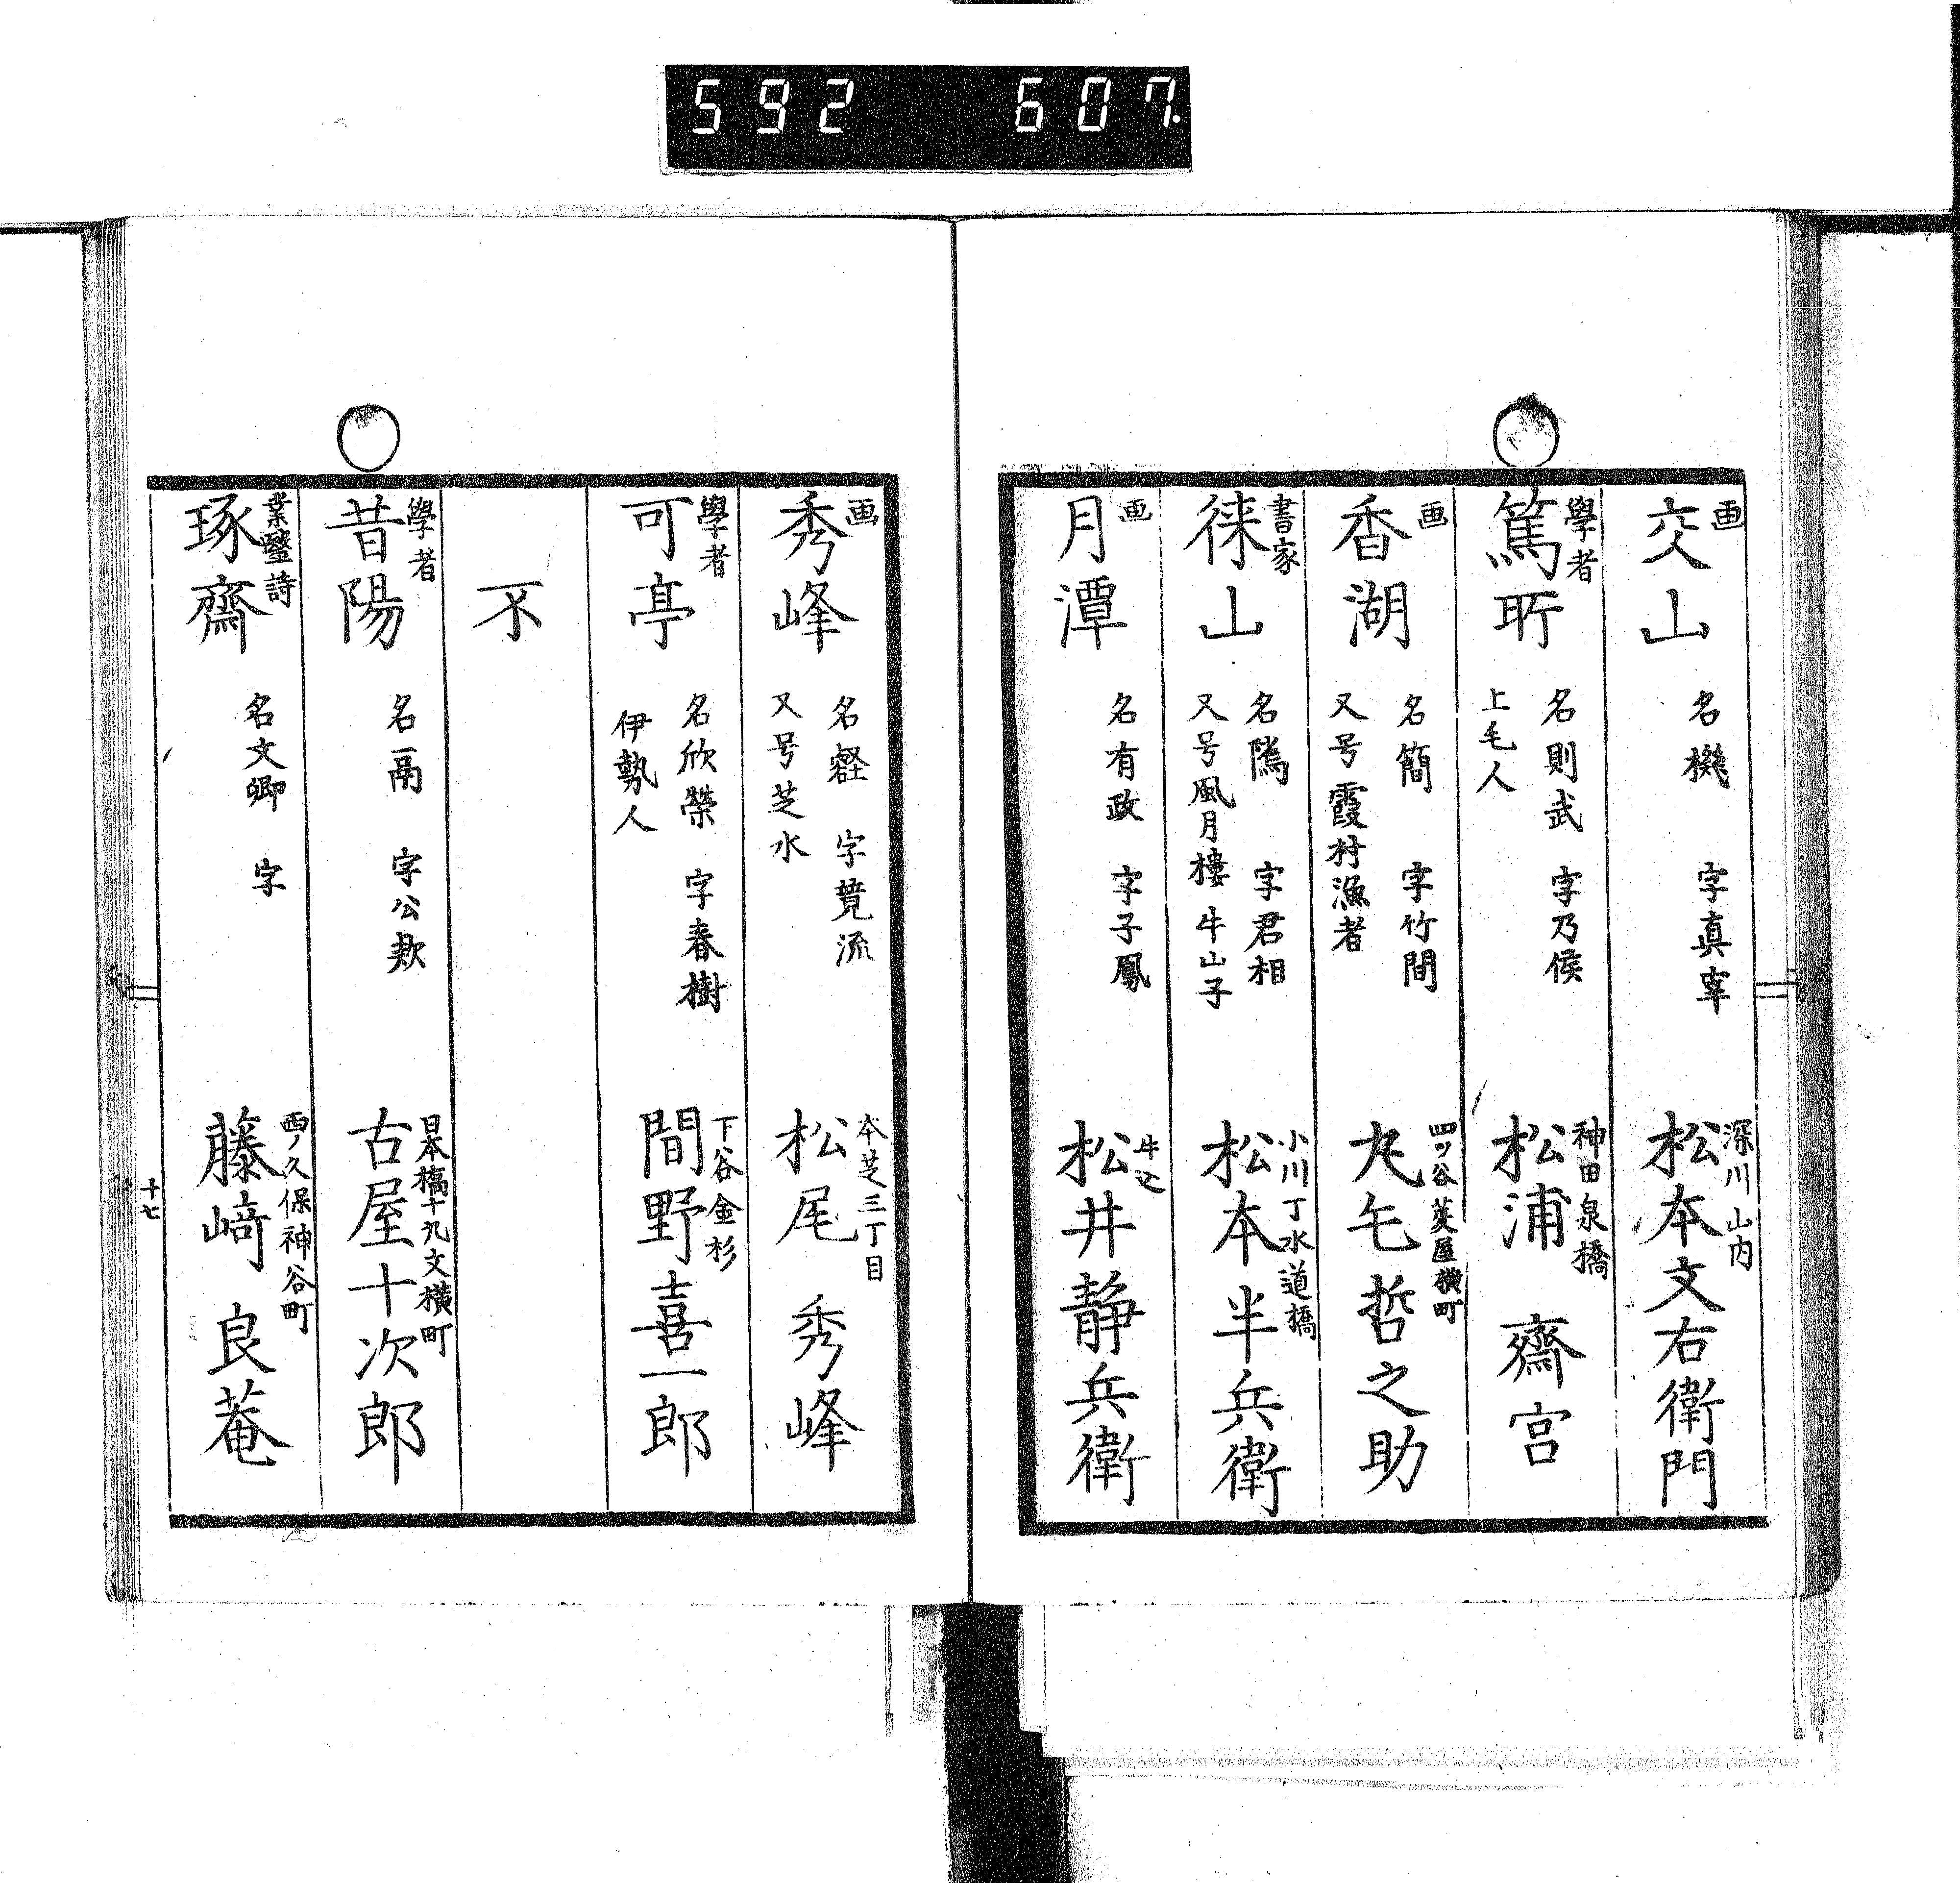 592 607.
画
交山
名機 字真宰
深川山内
松本文右衛門
學者
篤所
名則武 字乃侯
上毛人
神田泉橋
松浦 齋宮
画
香湖
名簡 字竹間
又号霞村漁者
四ツ谷菱屋横町
丸毛哲之助
書家
徠山
名隲 字君相
又号風月樓 牛山子
小川丁水道橋
松本半兵衛
画
月潭
名有政 字子鳳
牛込
松井静兵衛
画
秀峰
字竟流
又号芝水
本芝三丁目
松尾 秀峰
學者
可亭
名欣榮 字春樹
伊勢人
下谷金杉
間野喜一郎
不
學者
昔陽
名鬲 字公款
日本橋十九文横町
古屋十次郎
業醫詩
琢齋
名文卿 字
西ノ久保神谷町
藤﨑 良菴
十七